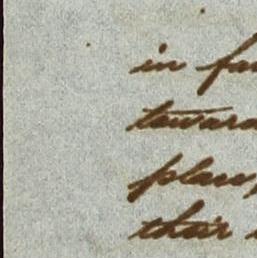 in fa
toward
place,
their